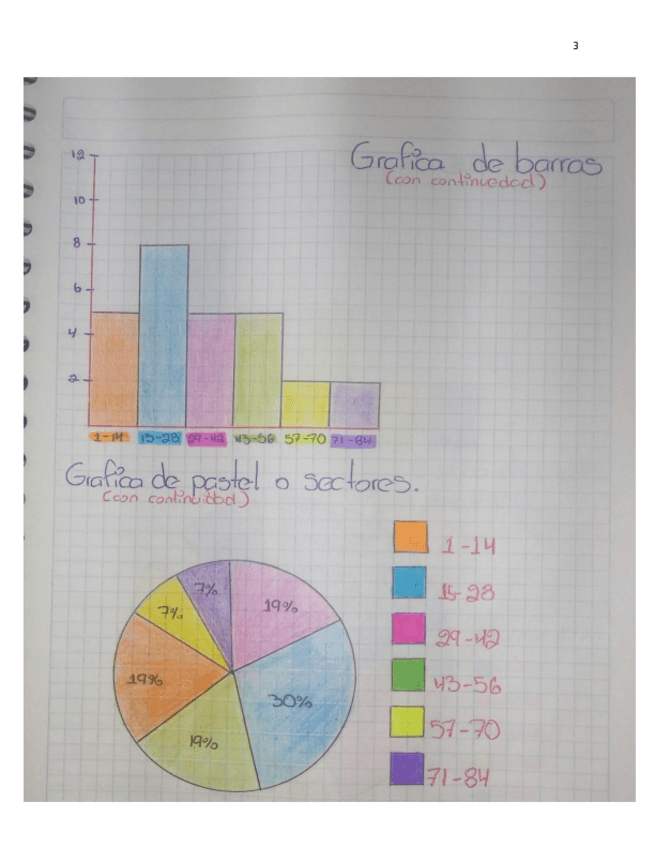 3
Grafica de barras
(con continuedad)
12
10
8
6
4
2
1-14 15-28 29-42 43-56 57-70 71-84
Grafica de pastel o sectores.
(con continuidad)
7%
19%
7%
19%
30%
19%
1-14
15-28
29-42
43-56
57-70
71-84